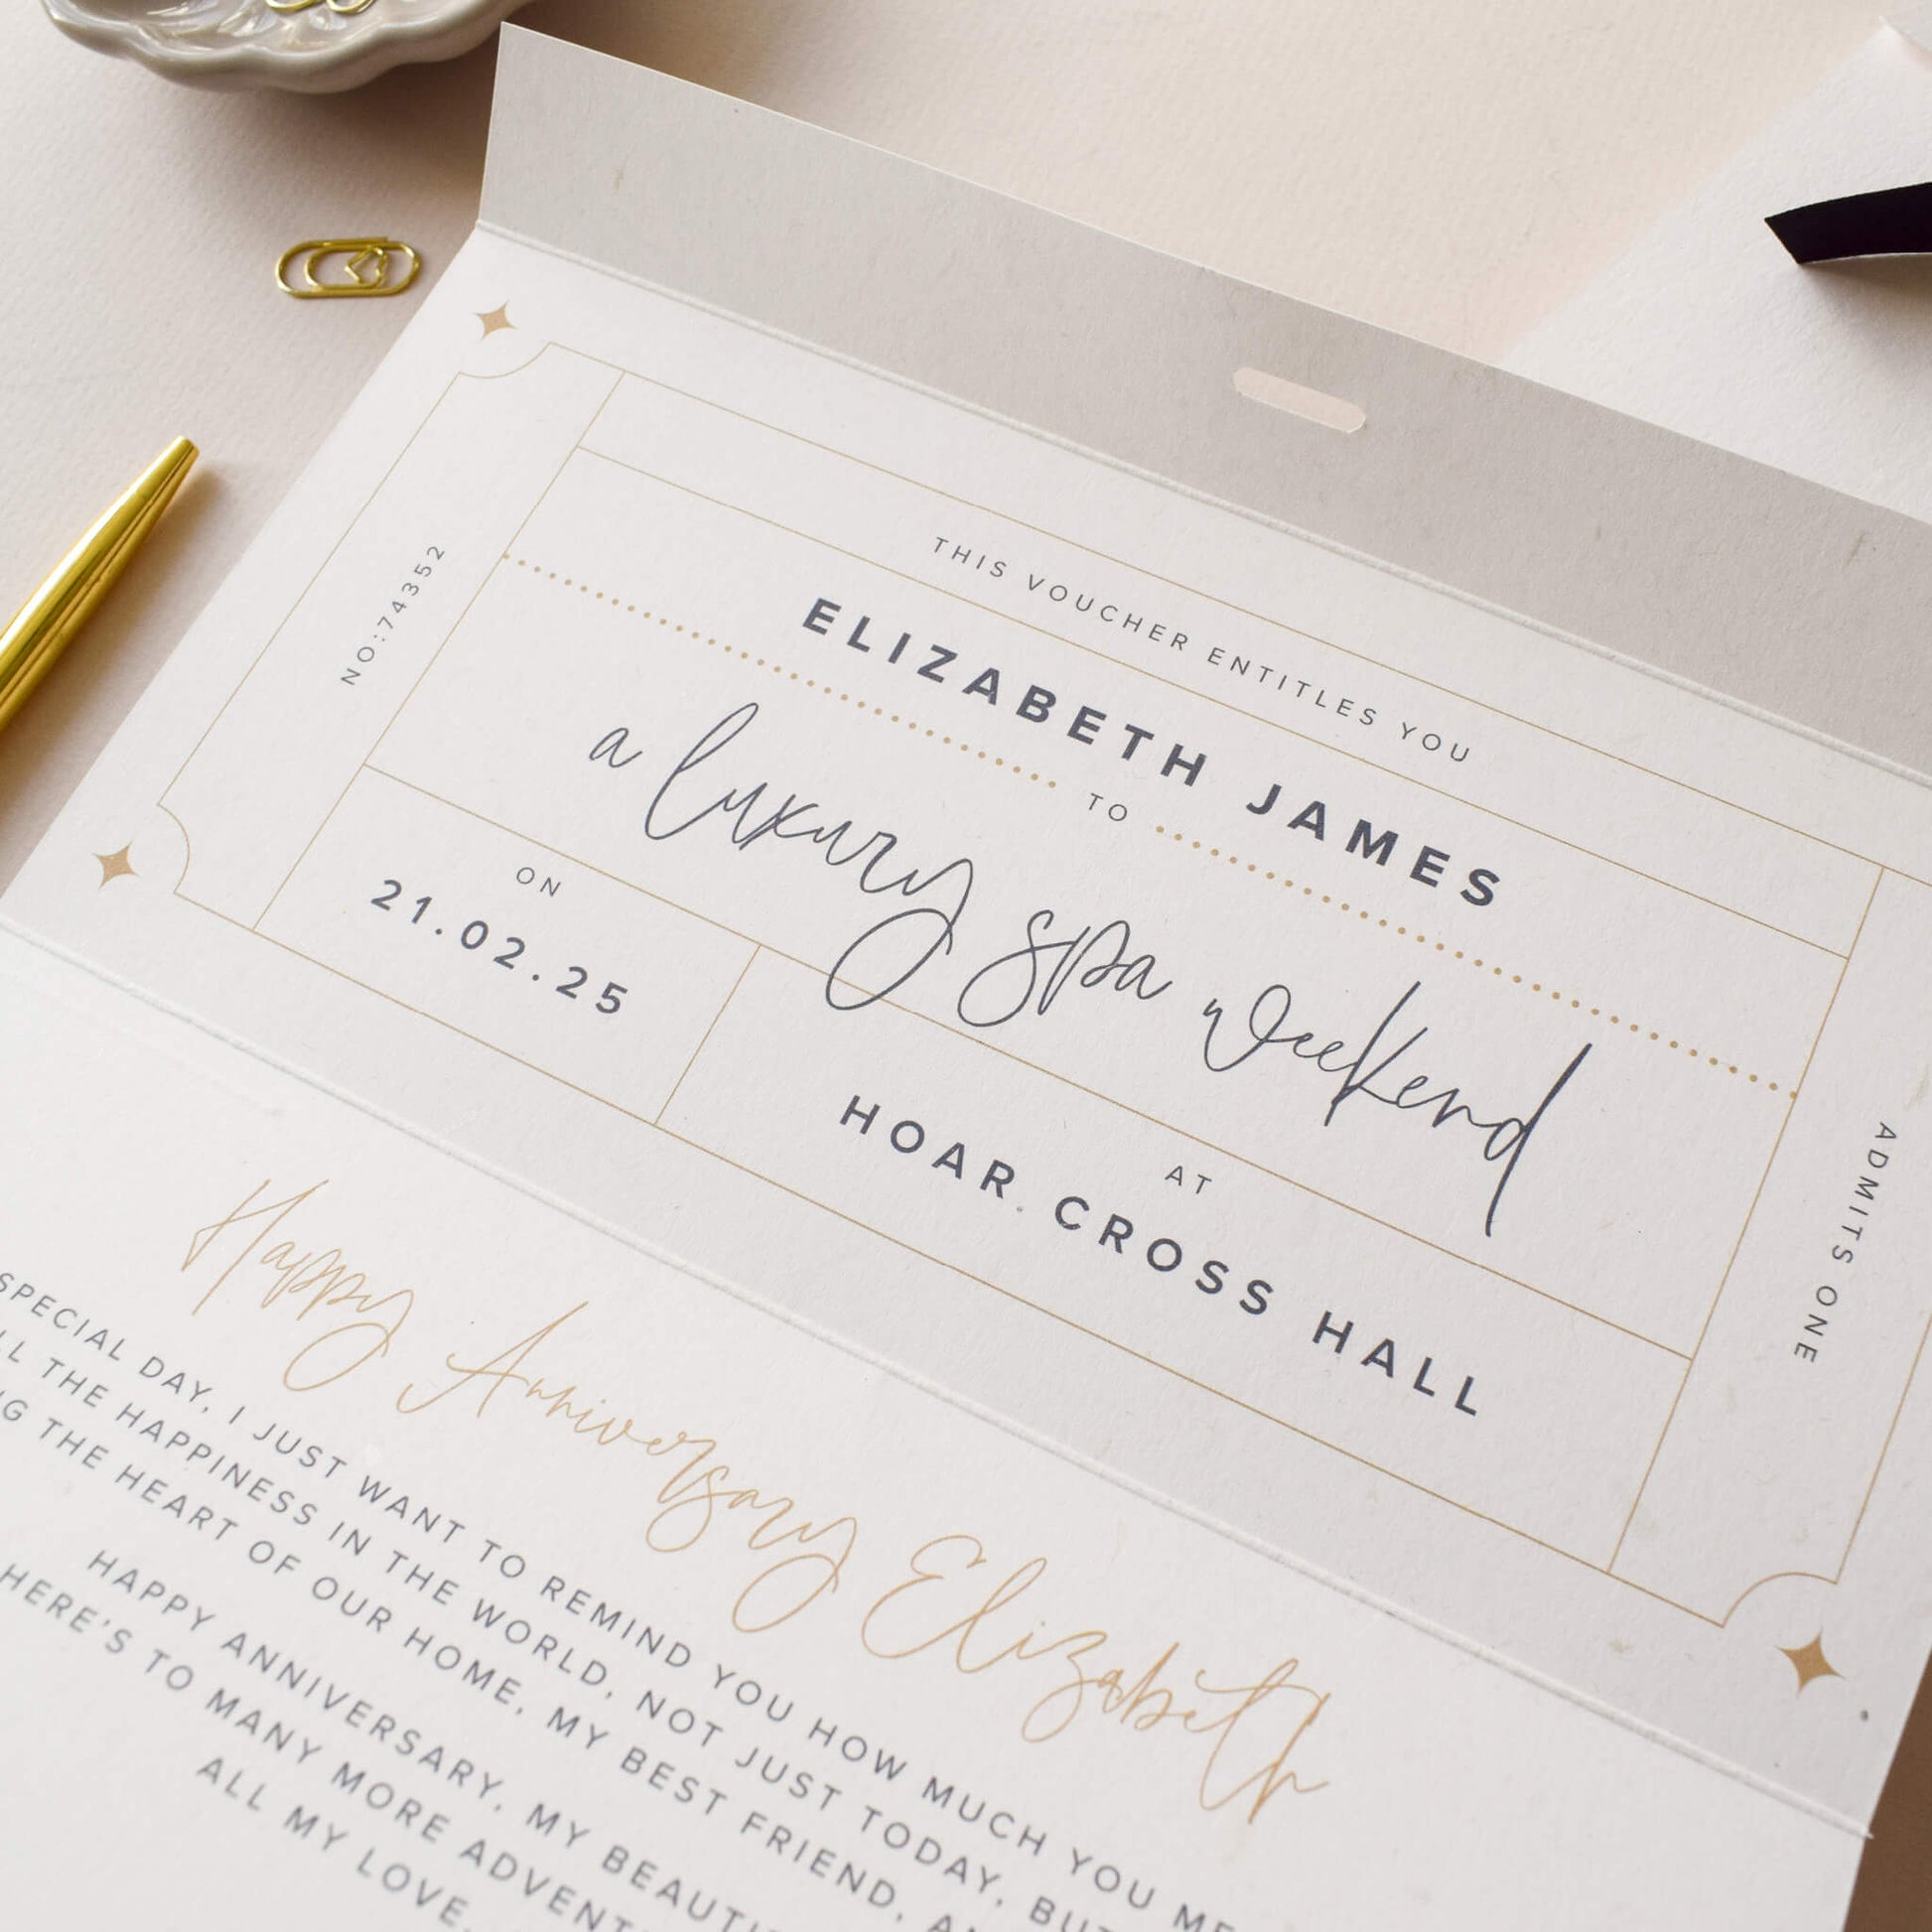 THIS VOUCHER ENTITLES YOU
ELIZABETH JAMES
TO
a luxury spa weekend
ON
21.02.25
AT
HOAR CROSS HALL
NO:74352
ADMITS ONE
Happy Anniversary Elizabeth
SPECIAL DAY, I JUST WANT TO REMIND YOU HOW MUCH YOU
THE HAPPINESS IN THE WORLD, NOT JUST TODAY, BUT
THE HEART OF OUR HOME, MY BEST FRIEND,
HAPPY ANNIVERSARY, MY
HERE'S TO MANY MORE
ALL MY LOVE,